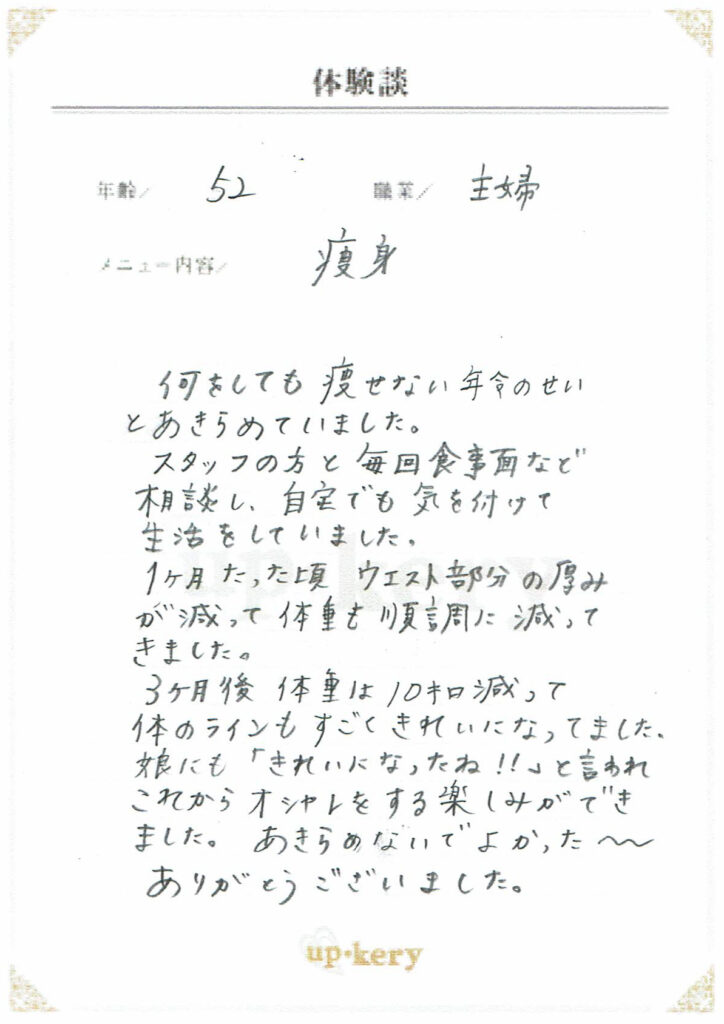 体験談
年齢／ 52 職業／ 主婦
メニュー内容／ 痩身
何をしても 痩せない 年令のせい
とあきらめていました。
スタッフの方と 毎回食事面など
相談し、自宅でも 気を付けて
生活をしていました。
1ヶ月 たった頃 ウエスト部分の厚み
が減って 体重も 順調に 減って
きました。
3ヶ月後 体重は 10キロ減って
体のラインも すごくきれいになってました。
娘にも「きれいになったね!!」と言われ
これから オシャレをする楽しみができ
ました。 あきらめないでよかった〜〜
ありがとうございました。
up・kery
up・kery